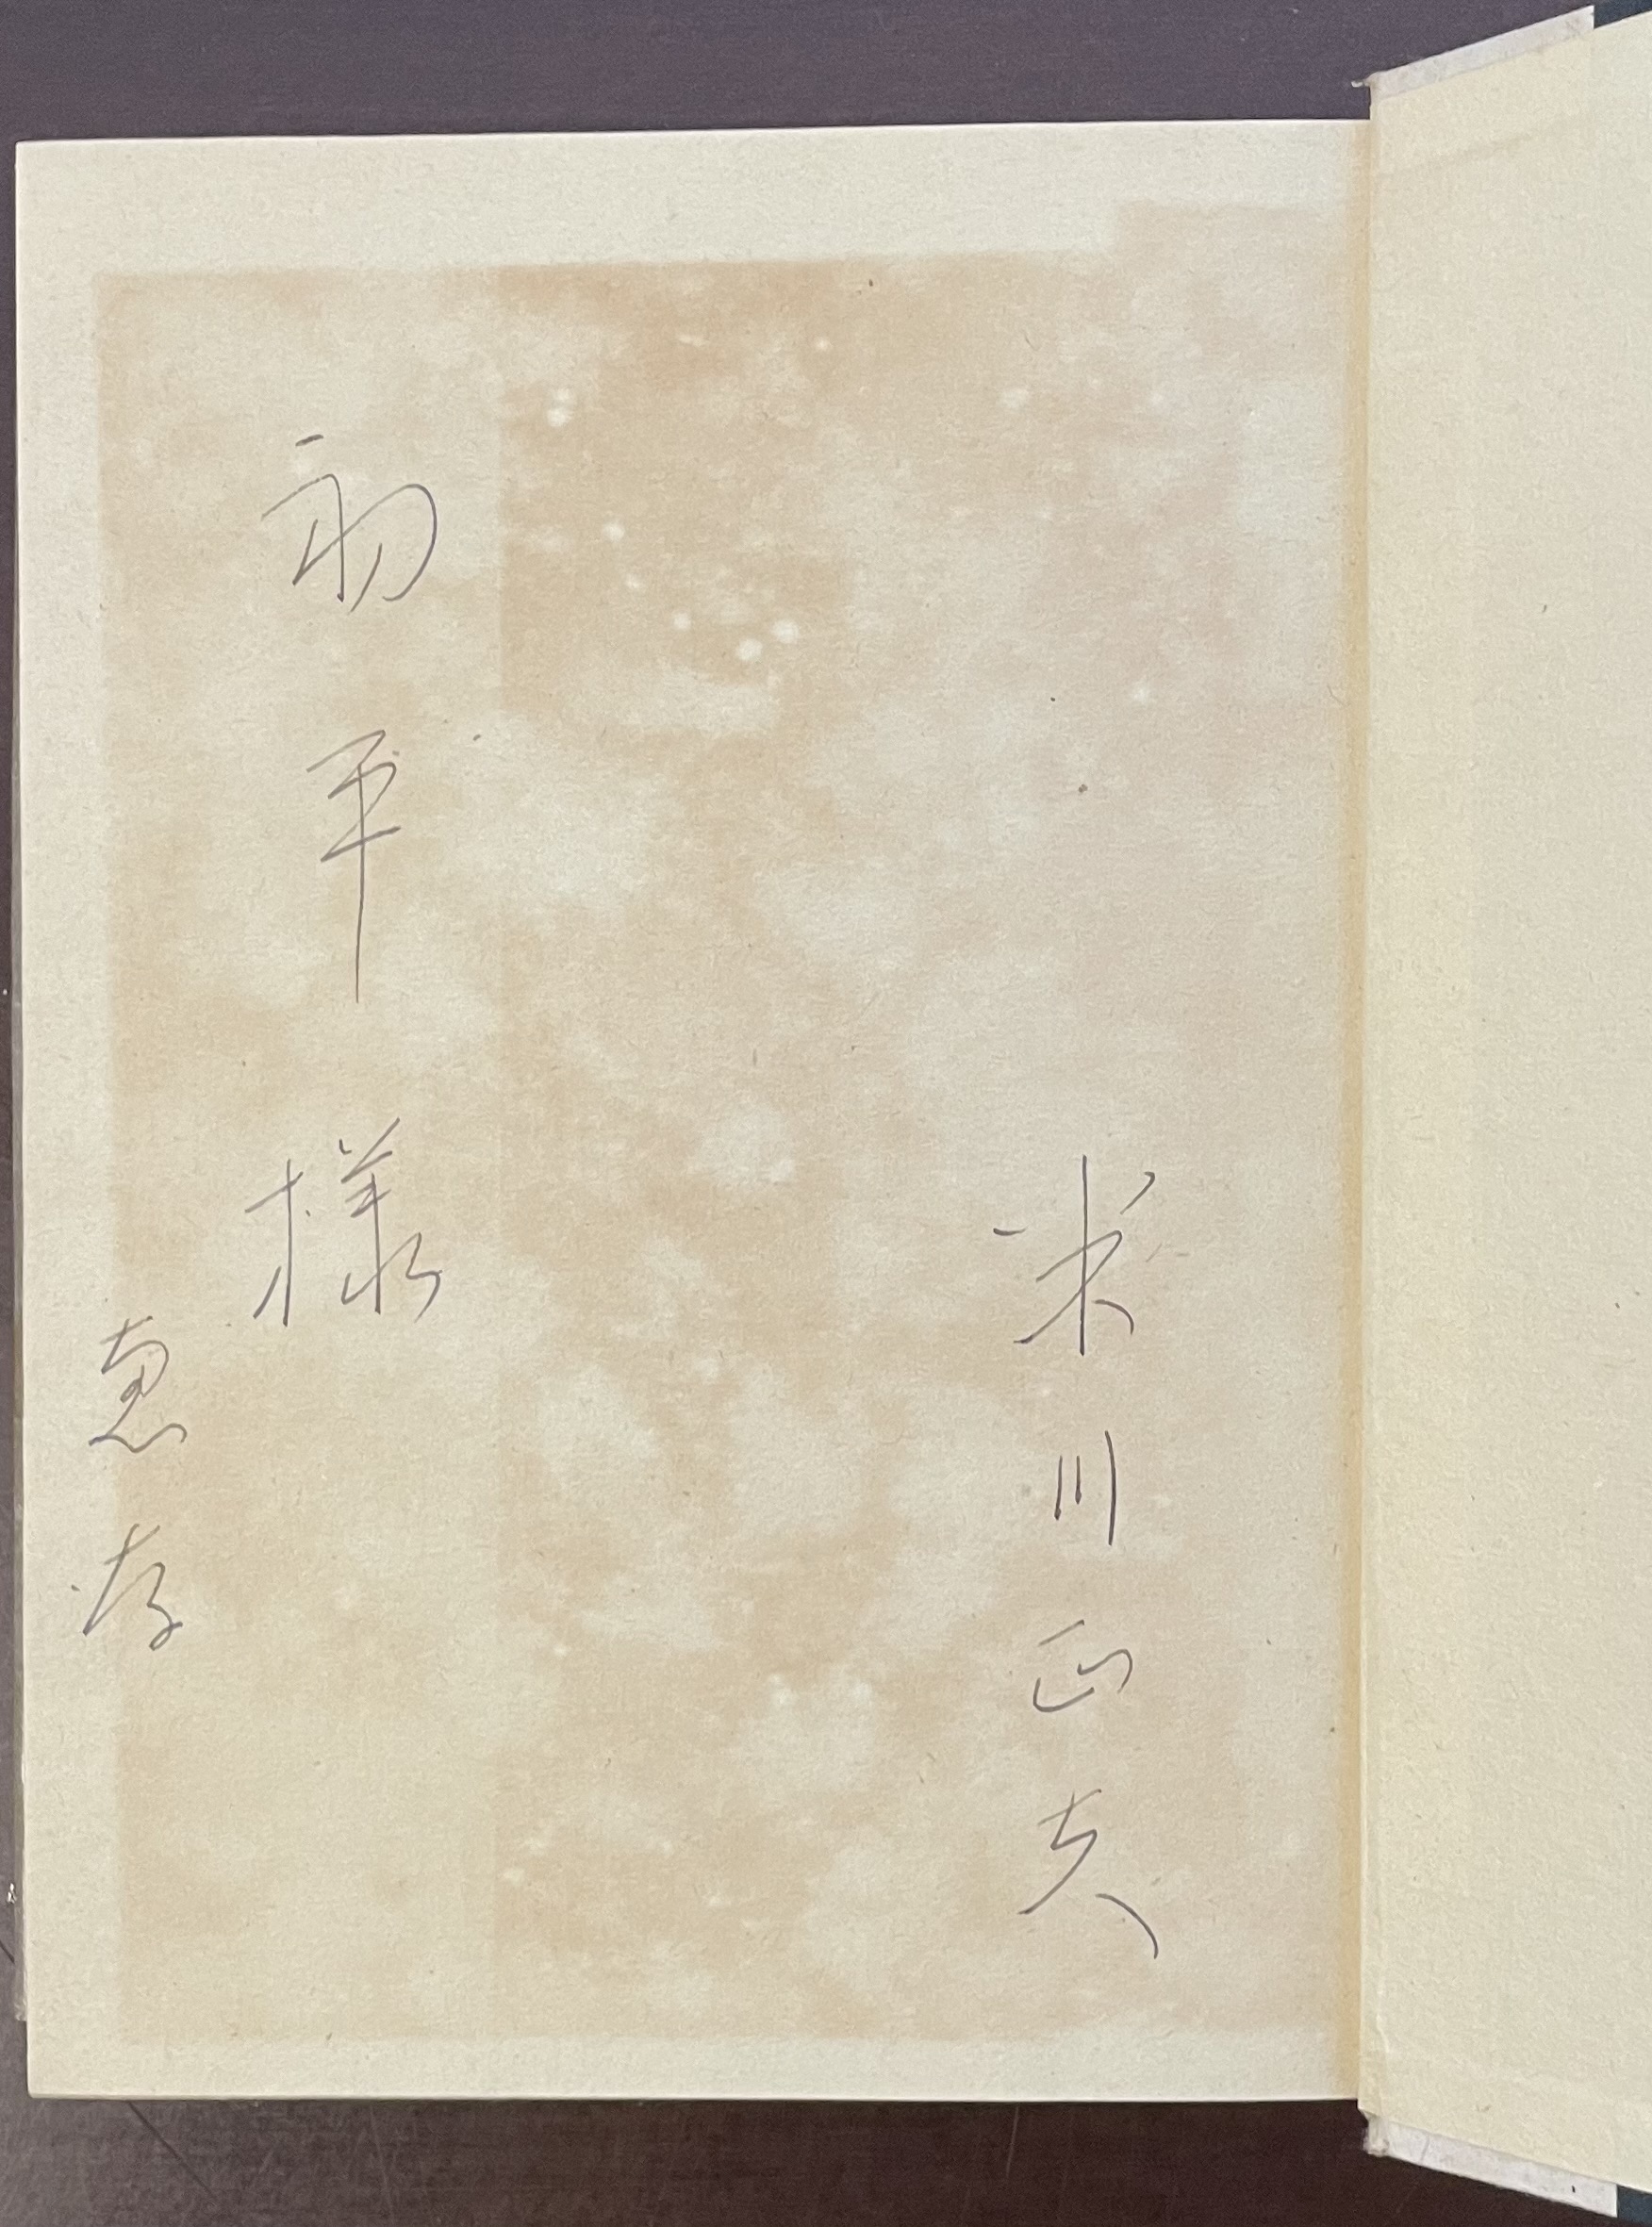 米川正夫
初平様
恵存